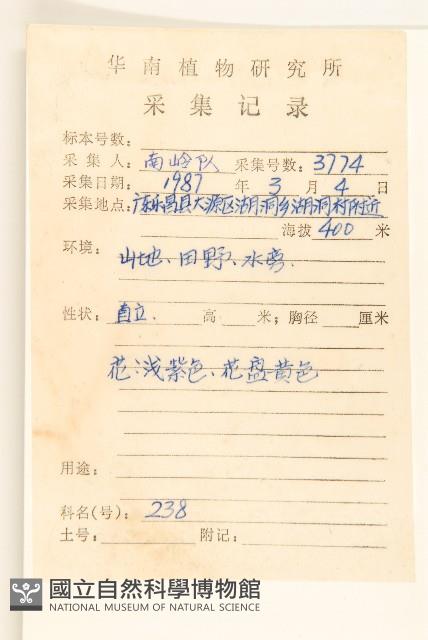 华南植物研究所
采集记录
标本号数：
采集人：南岭队 采集号数：3774
采集日期：1987年3月4日
采集地点：广东乐昌县大源区湖洞乡湖洞村附近
海拔 400 米
环境：山地、田野、水旁.
性状：直立. 高 米；胸径 厘米
花：浅紫色、花盘黄色
用途：
科名(号)：238
土号： 附记：
國立自然科學博物館
NATIONAL MUSEUM OF NATURAL SCIENCE